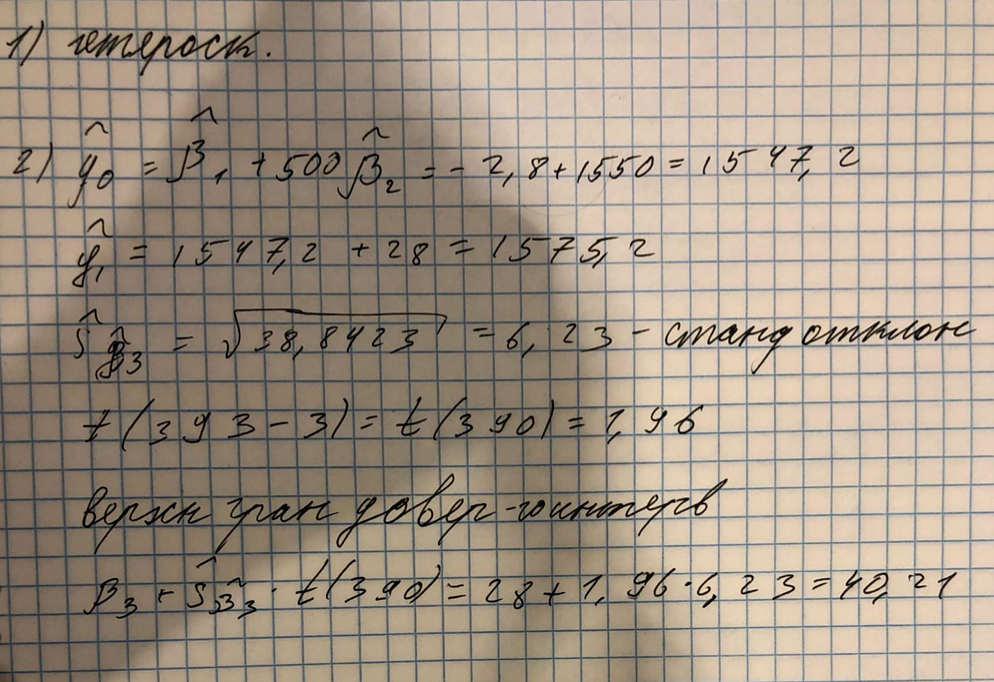 1) гетероск.
2) ŷ₀ = β̂₁ + 500β̂₂ = - 2,8 + 1550 = 1547,2
ŷ₁ = 1547,2 + 28 = 1575,2
ŝ_β̂₃ = √38,8423 = 6,23 - станд отклон
t(393-3) = t(390) = 1,96
верхн гран довер-го интерв
β₃ + ŝ_β̂₃ · t(390) = 28 + 1,96·6,23 = 40,21